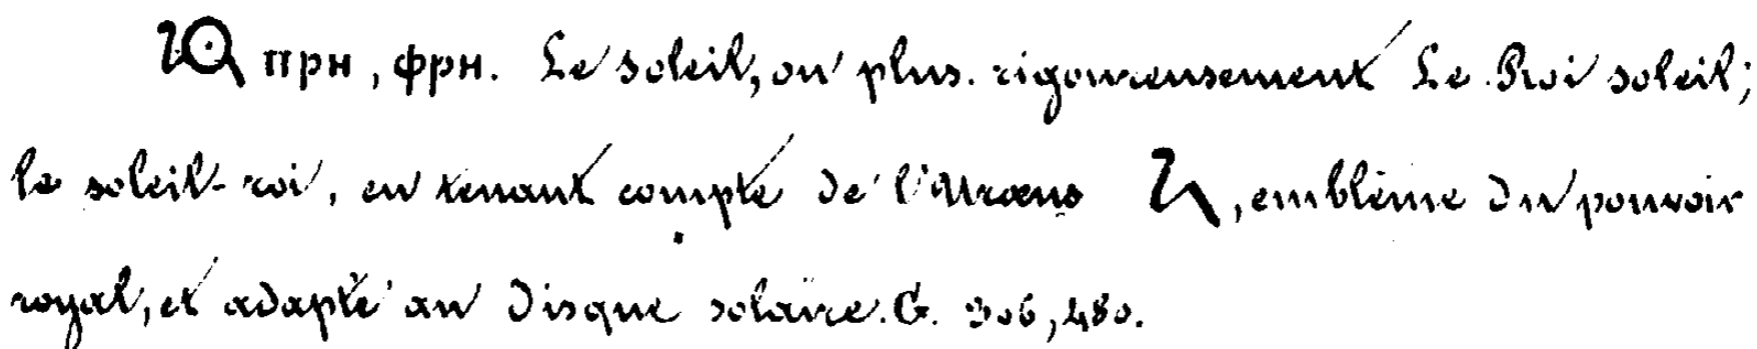 ⲡⲣⲏ, ⲫⲣⲏ. Le soleil, ou plus rigoureusement Le Roi soleil;
le soleil-roi, en tenant compte de l'Uraeus, emblème du pouvoir
royal, et adapté au disque solaire. G. 306, 480.